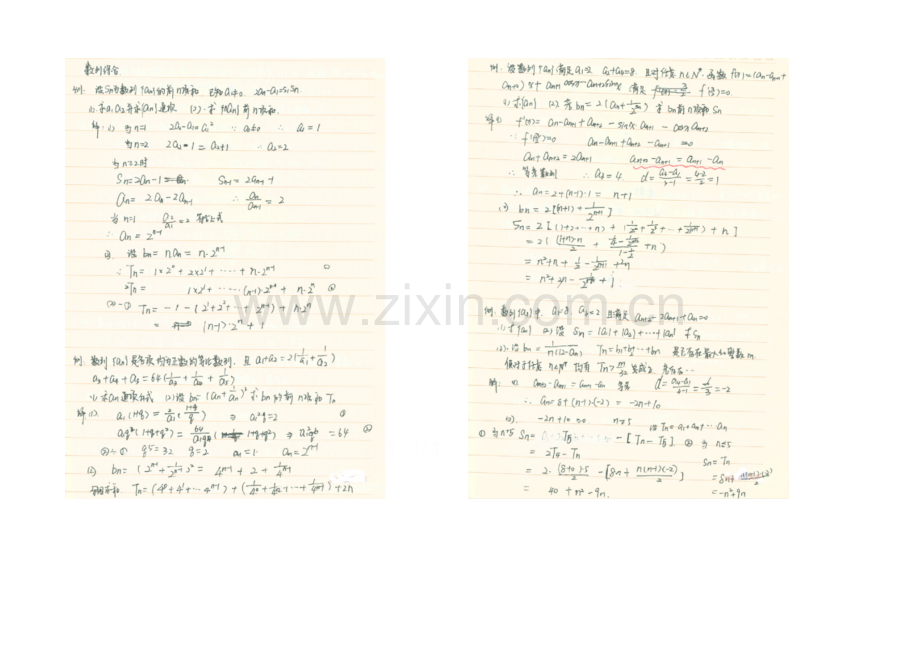 数列综合
例. 设Sn为数列{an}的前n项和 已知a1≠0. 2an-a1=S1·Sn
(1) 求a1 a2 并求{an}通项 (2) 求{nan}前n项和.
解: (1) 当n=1 2a1-a1=a1² ∵a1≠0 ∴ a1=1
当n=2 2a2-1=a2+1 ∴a2=2
当n≥2时
Sn=2an-1 Sn-1=2an-1-1
an=2an-2an-1 ∴ an/an-1=2
当n=1 a2/a1=2 符合上式
∴an=2^(n-1)
设bn=nan=n·2^(n-1)
∴Tn=1×2^0+2×2^1+……+n·2^(n-1) ①
2Tn= 1×2^1+……(n-1)·2^(n-1)+n·2^n ②
Tn=-1-(2^1+2^2+…+2^(n-1))+n·2^n
= (n-1)·2^n+1
例. 数列{an}是各项均为正数的等比数列. 且 a1+a2=2(1/a1+1/a2)
a3+a4+a5=64(1/a3+1/a4+1/a5)
(1) 求an通项公式 (2) 设bn=(an+1/an)² 求bn的前n项和Tn
a1²q=2
q=2 a1=1 an=2^(n-1)
(2) bn=(2^(n-1)+1/2^(n-1))²=4^(n-1)+2+1/4^(n-1)
Tn=(4^0+4^1+…4^(n-1))+(1/4^0+1/4^1+…+1/4^(n-1))+2n
例. 设数列{an}满足a1=2 a2+a4=8. 且对任意n∈N*. 函数f(x)=(an-an+1+
an+2)x+an+1cosx-an+2sinx 满足 f'(π/2)=0
(1) 求{an} (2) 若bn=2(an+1/2^an) 求bn前n项和Sn
解(1) f'(x)=an-an+1+an+2-sinx·an+1-cosx·an+2
∵f'(π/2)=0 an-an+1+an+2-an+1=0
an+an+2=2an+1 an+2-an+1=an+1-an
∴等差数列 ∴a3=4 d=(a3-a1)/(3-1)=(4-2)/2=1
∴an=2+(n-1)·1=n+1
bn=2[(n+1)+1/2^(n+1)]
Sn=2[(1+2+…+n)+(1/2²+1/2³+…+1/2^(n+1))+n]
www.zixin.com.cn
例. 数列{an}中, a1=8 a4=2 且满足an+2-2an+1+an=0
(1) 求{an} (2) 设Sn=|a1|+|a2|+…+|an| 求Sn
(3). 设bn=1/n(12-an) Tn=b1+b2…+bn 是否存在最大的整数m.
使对于任意n∈N* 均有Tn>m/32成立
解: (1) an+2-an+1=an+1-an 等差 d=(a4-a1)/(4-1)=-6/3=-2
∴an=8+(n-1)(-2)=-2n+10
(2). -2n+10≥0 n≤5 设Tn=a1+a2+…an
= 2T5-Tn
Sn=Tn
= 40+n²-9n.
=-n²+9n